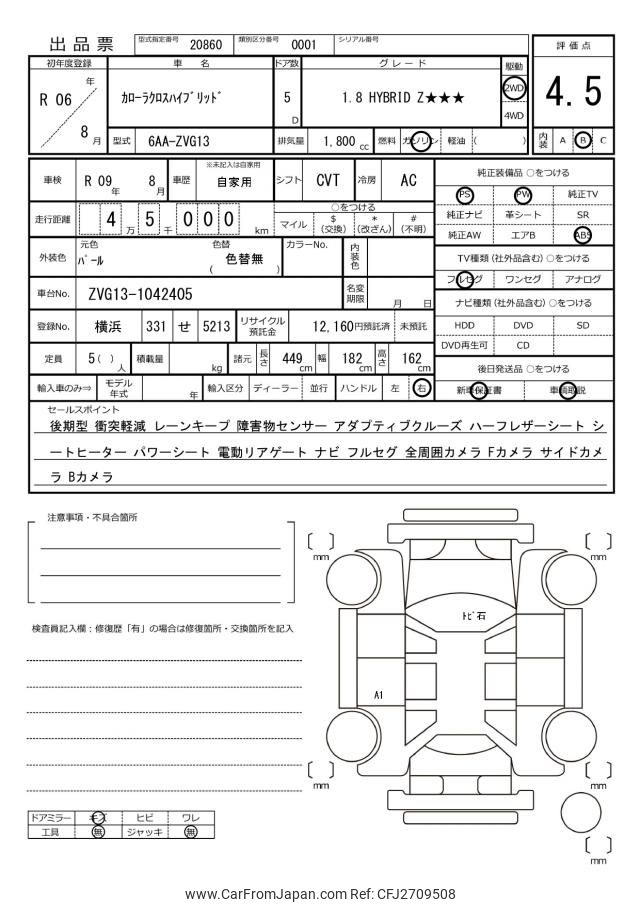 出品票
型式指定番号 20860 類別区分番号 0001 シリアル番号
評価点
4.5
内装 A B C
初年度登録 車名 ドア数 グレード 駆動
R 06 年 8 月
カローラクロスハイブリッド 5 D 1.8 HYBRID Z★★★ 2WD 4WD
型式 6AA-ZVG13 排気量 1,800 cc 燃料 ガソリン 軽油 ( )
車検 R 09 年 8 月 車歴 ※未記入は自家用 自家用 シフト CVT 冷房 AC
走行距離 4 5 0 0 0 万 千 km
○をつける
マイル $(交換) *(改ざん) #(不明)
外装色 元色 パール 色替 色替無 ( ) カラーNo. 内装色
車台No. ZVG13-1042405 名変期限 月 日
登録No. 横浜 331 せ 5213 リサイクル預託金 12,160円預託済 未預託
定員 5( ) 人 積載量 kg 諸元 長さ 449 cm 幅 182 cm 高さ 162 cm
輸入車のみ⇒ モデル年式 年 輸入区分 ディーラー 並行 ハンドル 左 右
純正装備品 ○をつける
PS PW 純正TV
純正ナビ 革シート SR
純正AW エアB ABS
TV種類(社外品含む) ○をつける
フルセグ ワンセグ アナログ
ナビ種類(社外品含む) ○をつける
HDD DVD SD
DVD再生可 CD
後日発送品 ○をつける
新車保証書 車輌取説
セールスポイント
後期型 衝突軽減 レーンキープ 障害物センサー アダプティブクルーズ ハーフレザーシート シ
ートヒーター パワーシート 電動リアゲート ナビ フルセグ 全周囲カメラ Fカメラ サイドカメ
ラ Bカメラ
注意事項・不具合箇所
検査員記入欄:修復歴「有」の場合は修復箇所・交換箇所を記入
mm
mm
トビ石
A1
mm
mm
mm
ドアミラー キズ ヒビ ワレ
工具 無 ジャッキ 無
www.CarFromJapan.com Ref: CFJ2709508